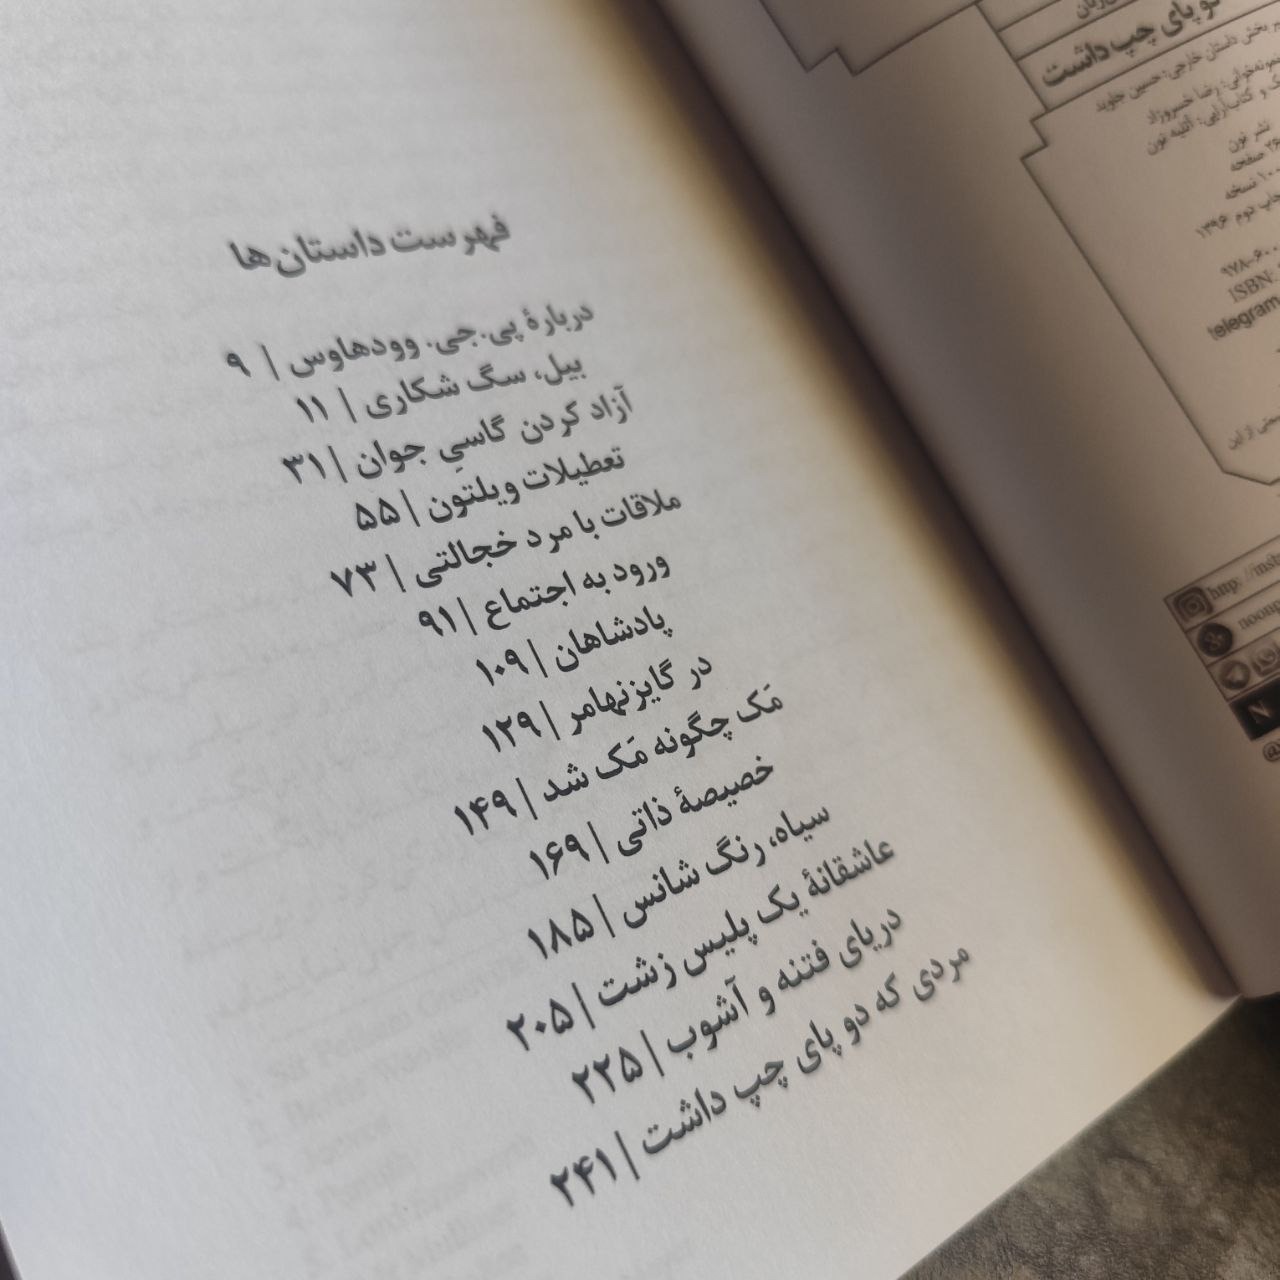 فهرست داستان‌ها
دربارهٔ پی.جی. وودهاوس | ۹
بیل، سگ شکاری | ۱۱
آزاد کردن گاسیِ جوان | ۳۱
تعطیلات ویلتون | ۵۵
ملاقات با مرد خجالتی | ۷۳
ورود به اجتماع | ۹۱
پادشاهان | ۱۰۹
در گایزنهامر | ۱۲۹
مَک چگونه مَک شد | ۱۴۹
خصیصهٔ ذاتی | ۱۶۹
سیاه، رنگ شانس | ۱۸۵
عاشقانهٔ یک پلیس زشت | ۲۰۵
دریای فتنه و آشوب | ۲۲۵
مردی که دو پای چپ داشت | ۲۴۱
پای چپ داشت
بخش داستان خارجی: حسین جاوید
رضا خسروزاد
کتاب‌آرایی: آتلیه نون
نشر نون
صفحه
نسخه
دوم ۱۳۹۶
۹۷۸-۶۰۰
ISBN:
telegram
از این
http://inst
noon
N
@